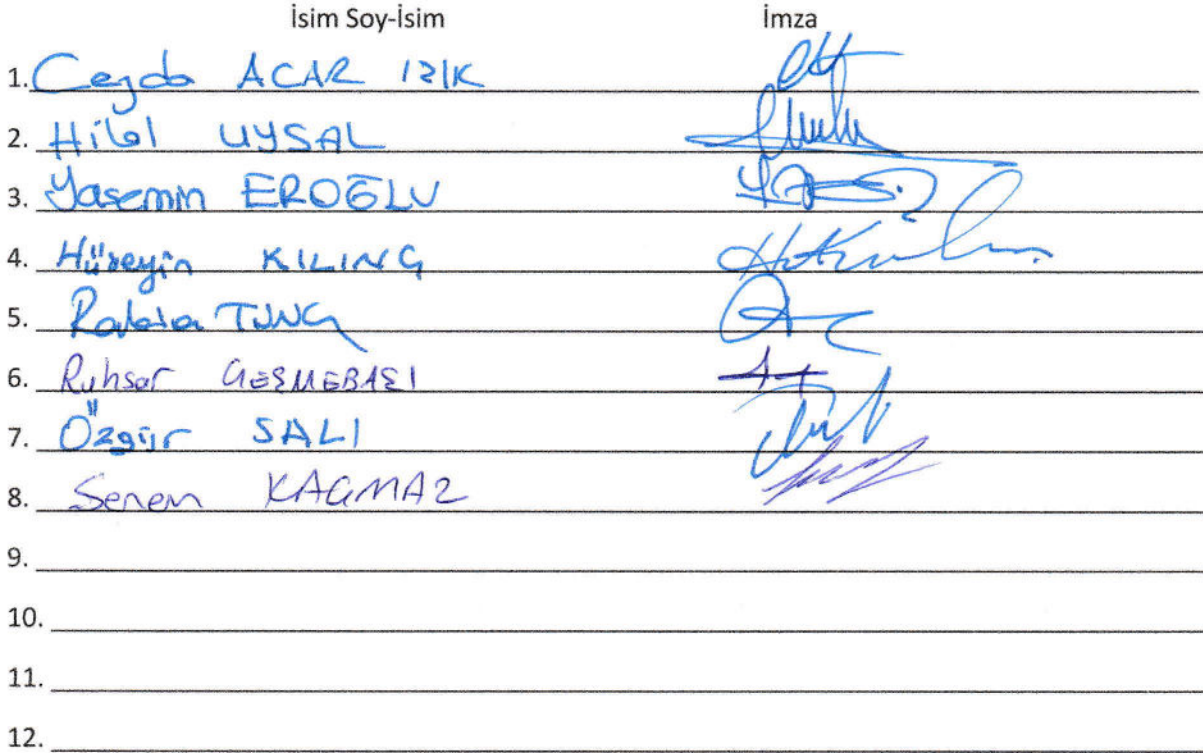 İsim Soy-İsim İmza
1. Ceyda ACAR IŞIK
2. Hilal UYSAL
3. Yasemin EROĞLU
4. Hüseyin KILINÇ
5. Rabia TUNÇ
6. Ruhsar ÇEŞMEBAŞI
7. Özgür SALI
8. Senem KAÇMAZ
9.
10.
11.
12.